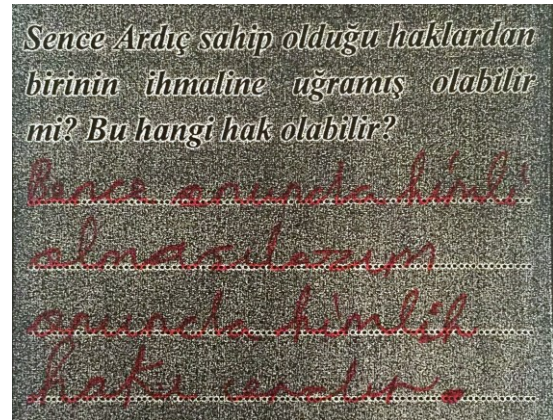 Sence Ardıç sahip olduğu haklardan
birinin ihmaline uğramış olabilir
mi? Bu hangi hak olabilir?
Bence onunda kimli
olması lazım
onunda kimlik
hakı vardır.